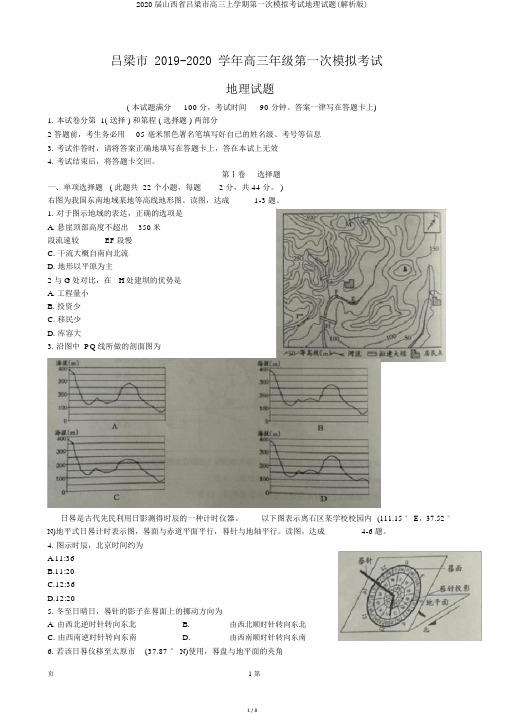 2020 届山西省吕梁市高三上学期第一次模拟考试地理试题(解析版)
吕梁市 2019-2020 学年高三年级第一次模拟考试
地理试题
( 本试题满分 100 分，考试时间 90 分钟。答案一律写在答题卡上)
1. 本试卷分第 1( 选择 ) 和第程 ( 选择题 ) 两部分
2 答题前，考生务必用 05 毫米黑色署名笔填写好自已的姓名级、考号等信息
3. 考试作答时，请将答案正确地填写在答题卡上，答在本试上无效
4. 考试结束后，将答题卡交回。
第Ⅰ卷 选择题
一、单项选择题 ( 此题共 22 个小题，每题 2 分，共 44 分。 )
右图为我国东南地域某地等高线地形图。读图，达成 1-3 题。
1. 对于图示地域的表达，正确的选项是
A. 悬崖顶部高度不超出 350 米
段流速较 EF 段慢
C. 干流大概自南向北流
D. 地形以平原为主
2 与 G 处对比，在 H 处建坝的优势是
A. 工程量小
B. 投资少
C. 移民少
D. 库容大
3. 沿图中 PQ 线所做的剖面图为
200
150
100
100
50
50 等高线(m) 河流 拟建大坝 居民点
海拔(m)
400
300
200
100
0
A
海拔(m)
400
300
200
100
0
B
海拔(m)
400
300
200
100
0
C
海拔(m)
400
300
200
100
0
D
日晷是古代先民利用日影测得时辰的一种计时仪器。 以下图表示离石区某学校校园内 (111.15 ° E，37.52 °
N)地平式日晷计时表示图，晷面与赤道平面平行，晷针与地轴平行。读图，达成 4-6 题。
4. 图示时辰，北京时间约为
A.11:36
B.11:20
C.12:36
D.12:20
5. 冬至日晴日，晷针的影子在晷面上的挪动方向为
A. 由西北逆时针转向东北 B. 由西北顺时针转向东北
C. 由西南逆时针转向东南 D. 由西南顺时针转向东南
6. 若该日晷仪移至太原市 (37.87 ° N)使用，晷盘与地平面的夹角
晷针
晷面
晷针投影
地平面
北
页 1 第
1 / 8